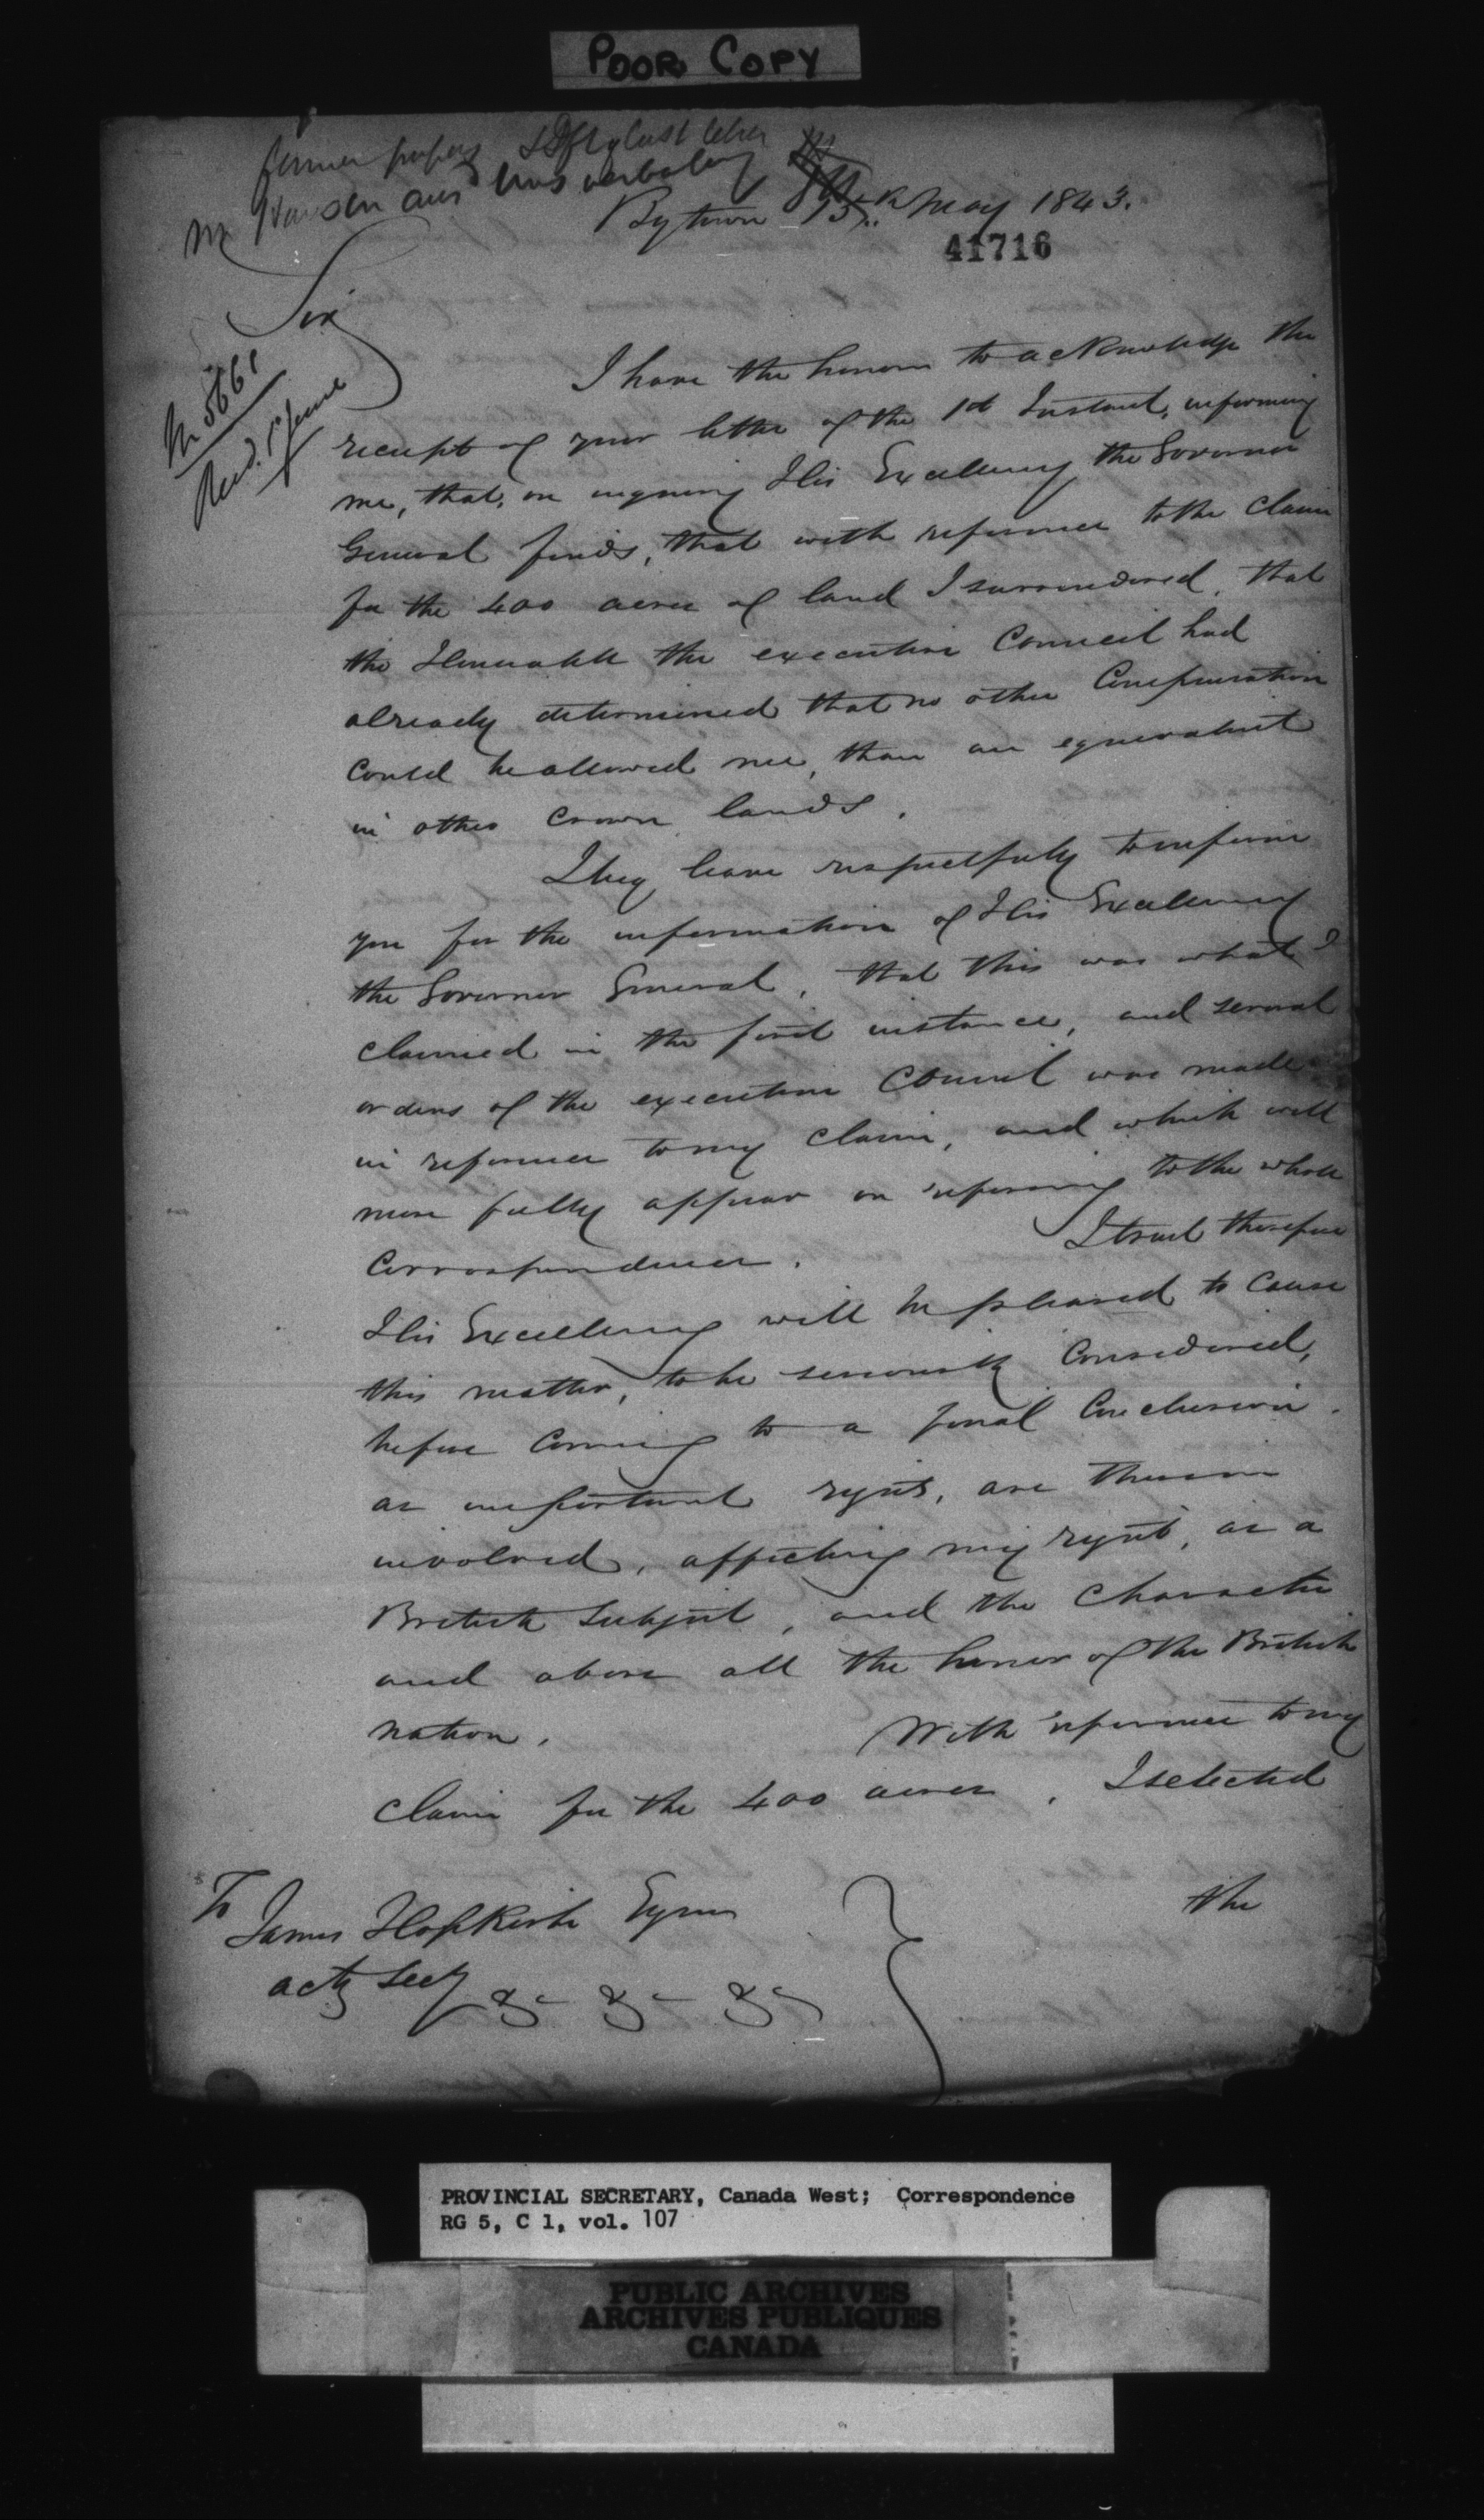 POOR COPY
former papers & Dft of last letter
Mr Hanson ansd this verbally
Bytown 15th May 1843.
41716
Sir
No 5661
Recd. 1st June
I have the honor to acknowledge the
receipt of your letter of the 1st Instant, informing
me, that, on inquiring His Excellency the Governor
General finds, that with reference to the claim
for the 400 acres of land I surrendered, that
the Honorable the executive Council had
already determined that no other Compensation
Could be allowed me, than an equivalent
in other Crown lands.
I beg leave respectfully to inform
you for the information of His Excellency
the Governor General, that this was what I
claimed in the first instance, and several
orders of the executive Council was made
in reference to my claim, and which will
more fully appear on refering to the whole
Correspondence. I trust therefore
His Excellency will be pleased to Cause
this matter, to be seriously Considered,
before Coming to a final Conclusion.
as important rights, are therein
involved, affecting my right, as a
British Subject, and the Character
and above all the honor of the British
nation. With reference to my
Claim for the 400 acres, I selected
the
To
James Hopkirk Esqr
actg Secy &c &c &c
PROVINCIAL SECRETARY, Canada West; Correspondence
RG 5, C 1, vol. 107
PUBLIC ARCHIVES
ARCHIVES PUBLIQUES
CANADA